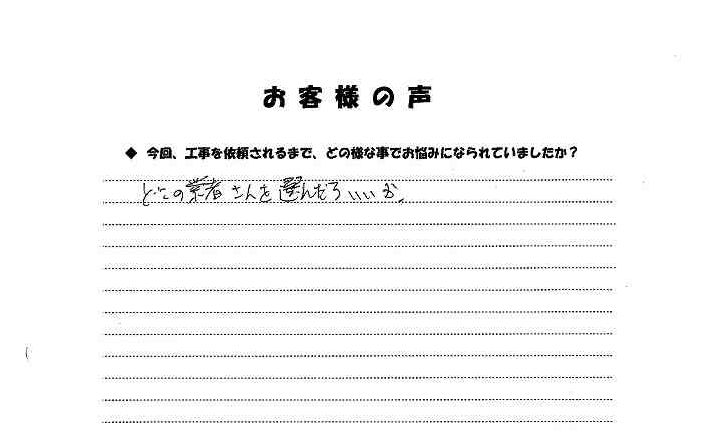 お客様の声
◆ 今回、工事を依頼されるまで、どの様な事でお悩みになられていましたか？
どこの業者さんを選んだらいいか。